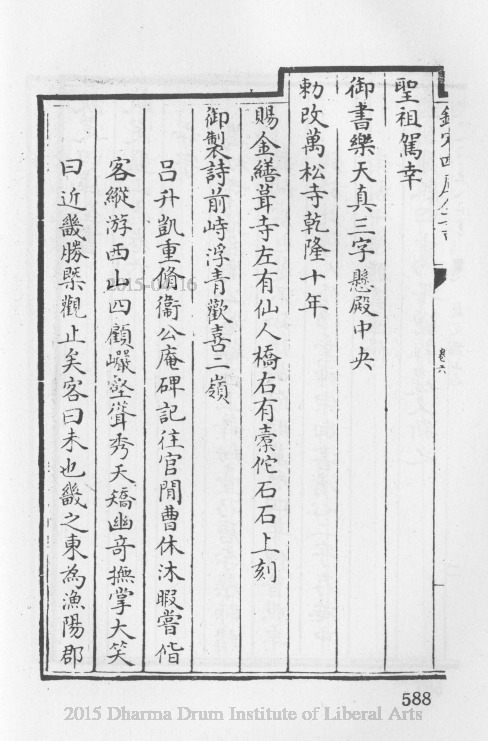 聖祖駕幸
御書樂天真三字懸殿中央
勅改萬松寺乾隆十年
賜金繕葺寺左有仙人橋右有橐佗石石上刻
御製詩前峙浮青歡喜二嶺
吕升凱重脩衞公庵碑記往官閒曹休沐暇嘗偕
客縱游西山四顧巘壑聳秀天矯幽竒撫掌大笑
曰近畿勝槩觀止矣客曰未也畿之東為漁陽郡
卷六
588
2015 Dharma Drum Institute of Liberal Arts